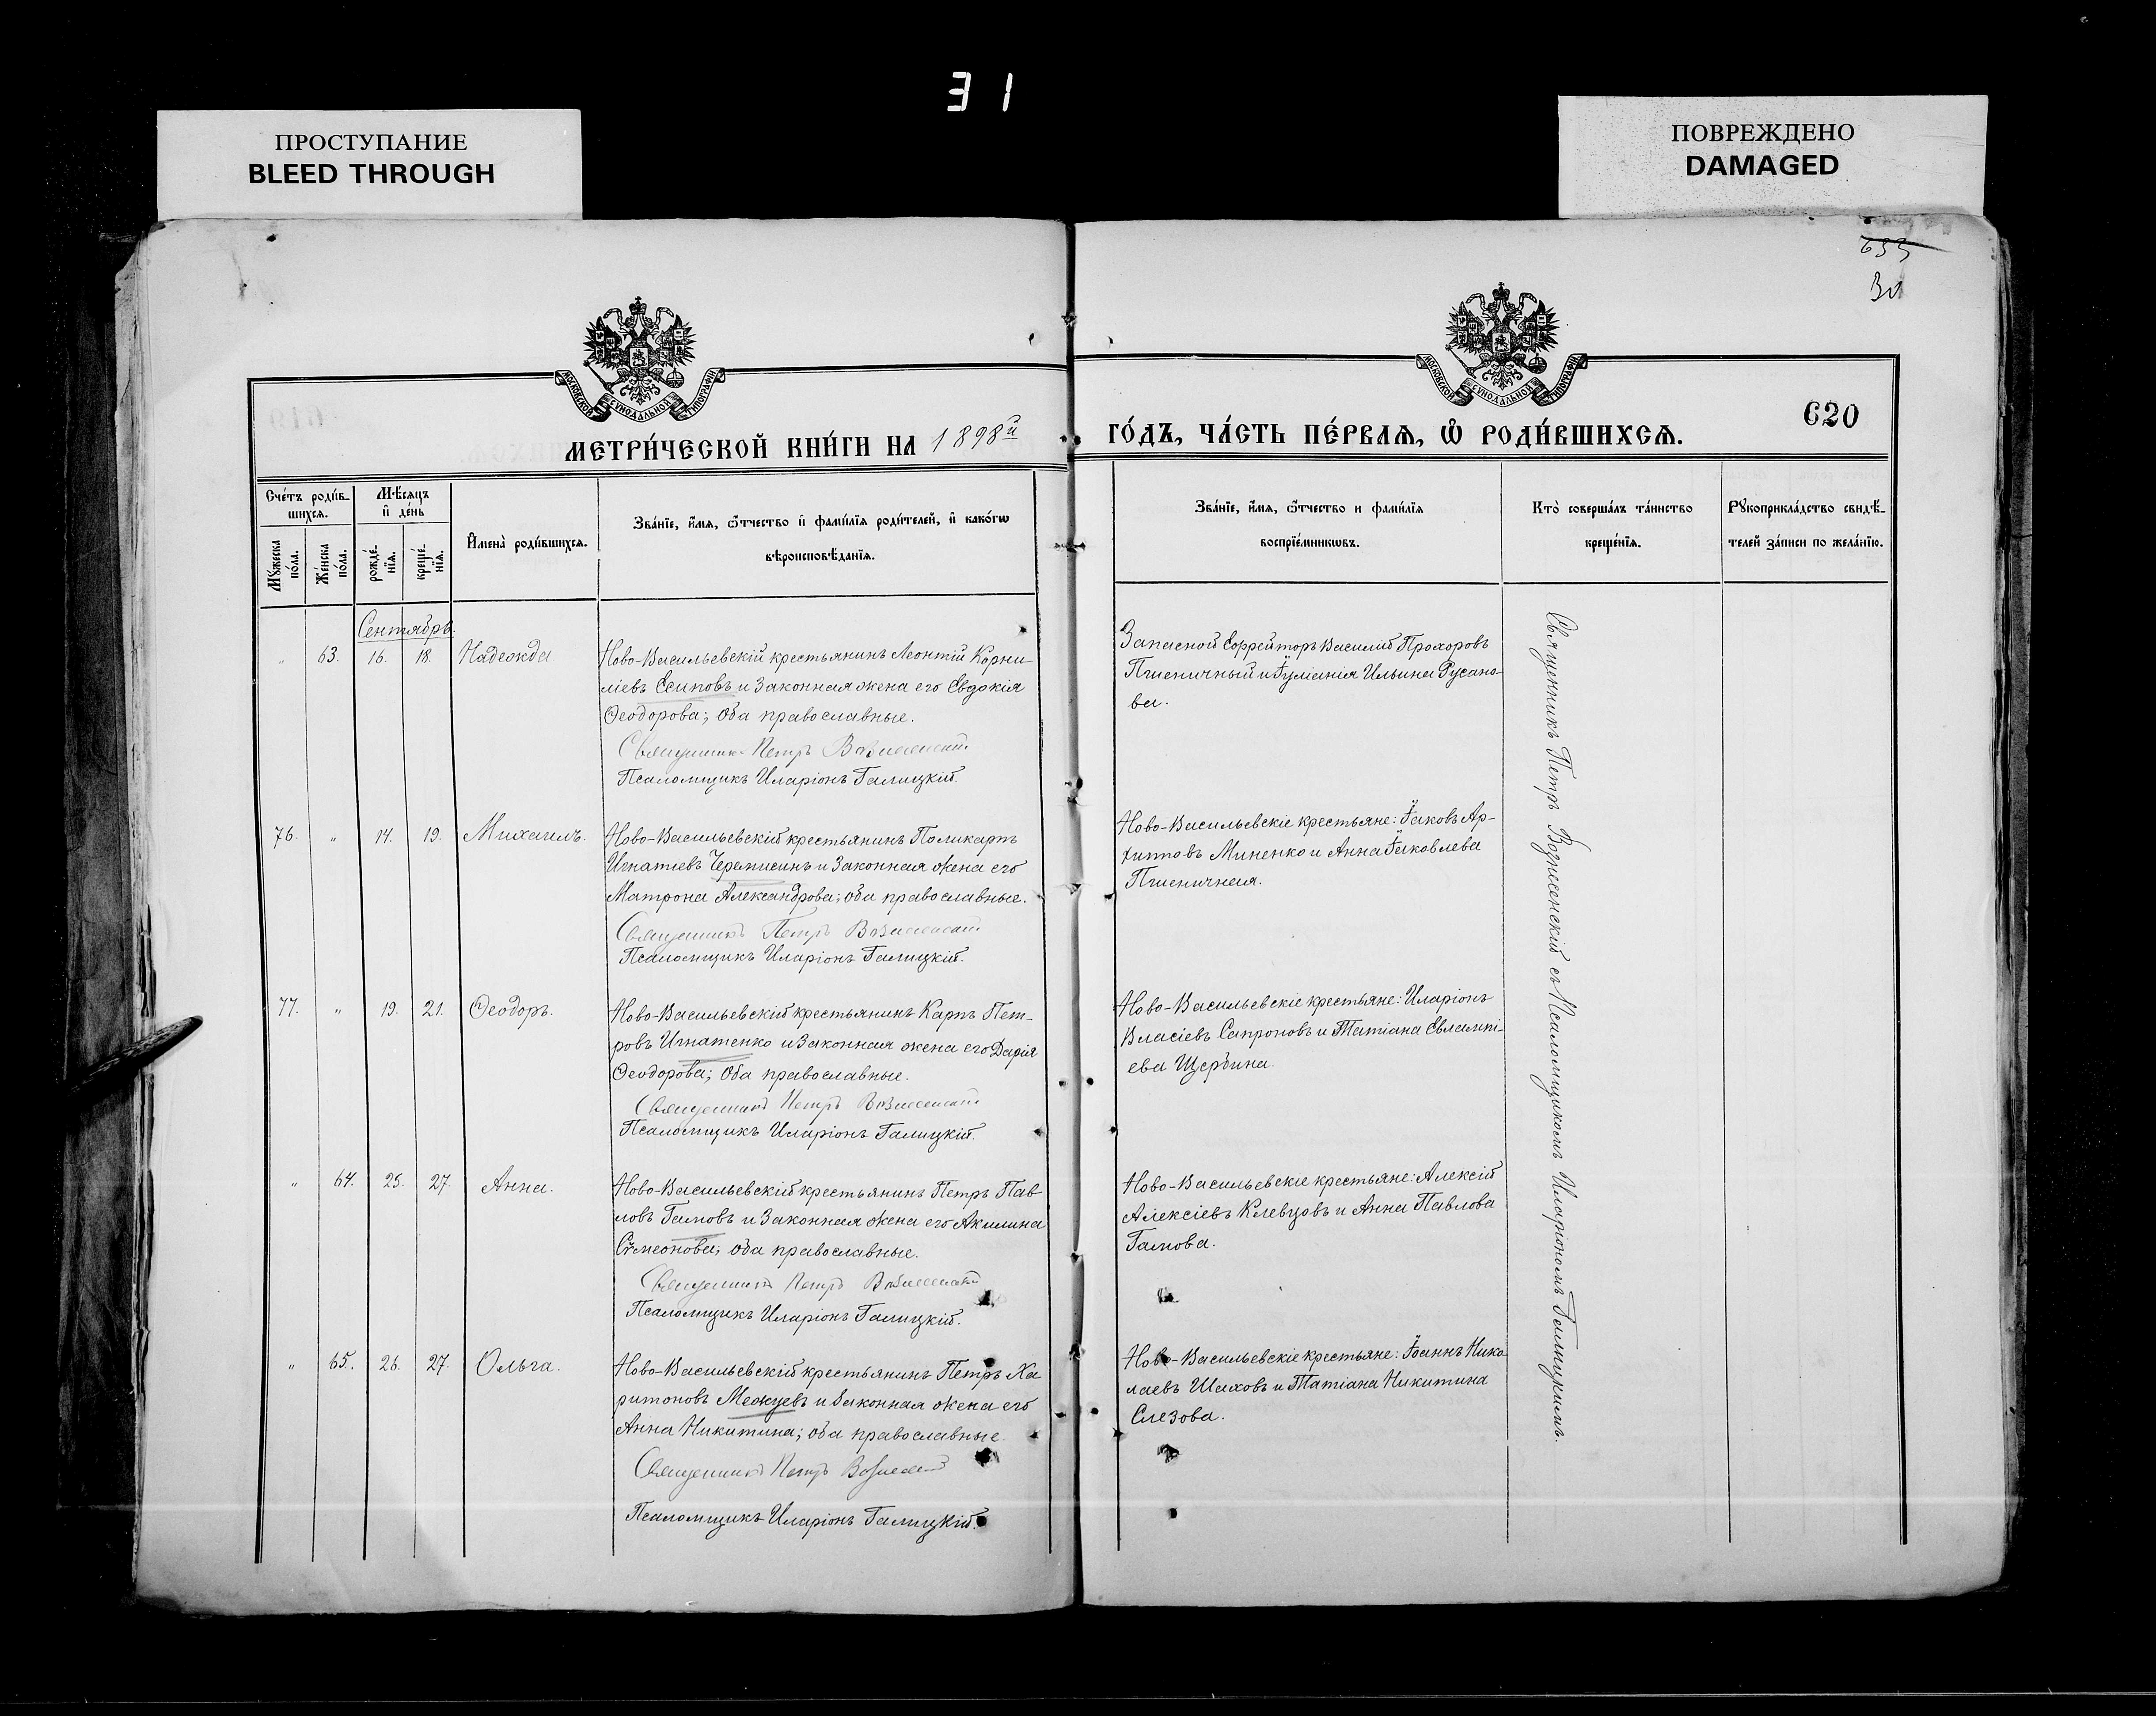 31
ПРОСТУПАНИЕ
BLEED THROUGH
ПОВРЕЖДЕНО
DAMAGED
633
30
МОСКОВСКОЙ СѴНОДАЛЬНОЙ ТИПОГРАФІИ
МОСКОВСКОЙ СѴНОДАЛЬНОЙ ТИПОГРАФІИ
МЕТРИ́ЧЕСКОЙ КНИ́ГИ НА 1898й
ГО́ДЪ, ЧА́СТЬ ПЕ́РВАЯ, Ѡ҆ РОДИ́ВШИХСЯ.
620
Сче́тъ роди́в-
шихся.
Мѣ́сяцъ
и҆ де́нь
Му́жеска по́ла.
Же́нска по́ла.
рожде́нїя.
креще́нїя.
И҆мена̀ роди́вшихся.
Зва́нїе, и҆́мя, ѻ҆́тчество и҆ фами́лїя роди́телей, и҆ како́гѡ
вѣроисповѣ́данїя.
Зва́нїе, и҆́мя, ѻ҆́тчество и фами́лїя
воспрїе́мникѡвъ.
Кто̀ соверша́лъ та́инство
креще́нїя.
Рукоприкла́дство свидѣ́-
телей за́писи по жела́нїю.
Сентябрь.
" 63. 16. 18. Надежда
Ново-Васильевскій крестьянинъ Леонтій Корни-
ліевъ Есиповъ и законная жена его Евдокія
Ѳеодорова; оба православные.
Священникъ Петръ Вознесенскій
Псаломщикъ Иларіонъ Галицкій.
Запасной Еффрейторъ Василій Прохоровъ
Пшеничный и Іуліанія Ильина Русано-
ва.
76. " 14. 19. Михаилъ.
Ново-Васильевскій крестьянинъ Поликарпъ
Игнатиевъ Черемисинъ и законная жена его
Матрона Александрова; оба православные.
Священникъ Петръ Вознесенскій
Псаломщикъ Иларіонъ Галицкій.
Ново-Васильевскіе крестьяне: Іаковъ Ар-
хиповъ Миненко и Анна Іаковлева
Пшеничная.
77. " 19. 21. Ѳеодоръ.
Ново-Васильевскій крестьянинъ Карпъ Пет-
ровъ Игнатенко и законная жена его Дарія
Ѳеодорова; оба православные.
Священникъ Петръ Вознесенскій
Псаломщикъ Иларіонъ Галицкій.
Ново-Васильевскіе крестьяне: Иларіонъ
Власіевъ Сапроновъ и Татіана Евлампі-
ева Щербина.
" 64. 25. 27. Анна.
Ново-Васильевскій крестьянинъ Петръ Пав
ловъ Гамовъ и законная жена его Акилина
Сѵмеонова; оба православные.
Священникъ Петръ Вознесенскій
Псаломщикъ Иларіонъ Галицкій.
Ново-Васильевскіе крестьяне: Алексій
Алексіевъ Клевцовъ и Анна Павлова
Гамова.
" 65. 26. 27. Ольга.
Ново-Васильевскій крестьянинъ Петръ Ха
ритоновъ Межуевъ и законная жена его
Анна Никитина; оба православные.
Священникъ Петръ Вознесенскій
Псаломщикъ Иларіонъ Галицкій.
Ново-Васильевскіе крестьяне: Іоаннъ Нико-
лаевъ Шаховъ и Татіана Никитина
Слезова.
Священникъ Петръ Вознесенскій съ Псаломщикомъ Иларіономъ Галицкимъ.